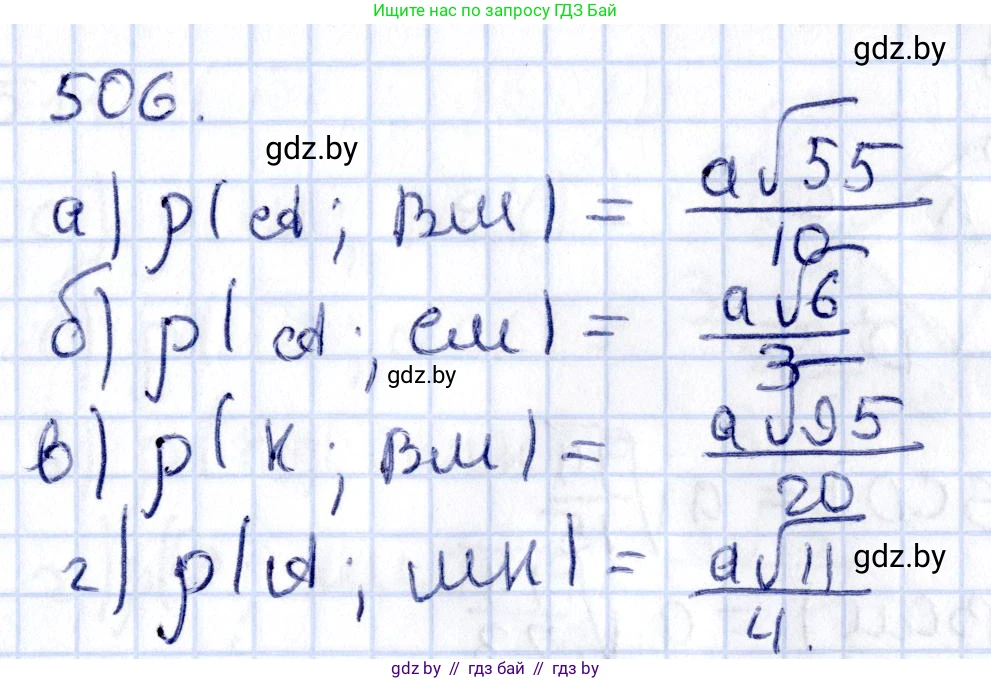 Ищите нас по запросу ГДЗ Бай
gdz.by
506.
gdz.by
а) ρ(A; BM) = a√55/10
б) ρ(A; CM) = a√6/3
gdz.by
в) ρ(K; BM) = a√95/20
г) ρ(A; MK) = a√11/4.
gdz.by
gdz.by // гдз бай // гдз by